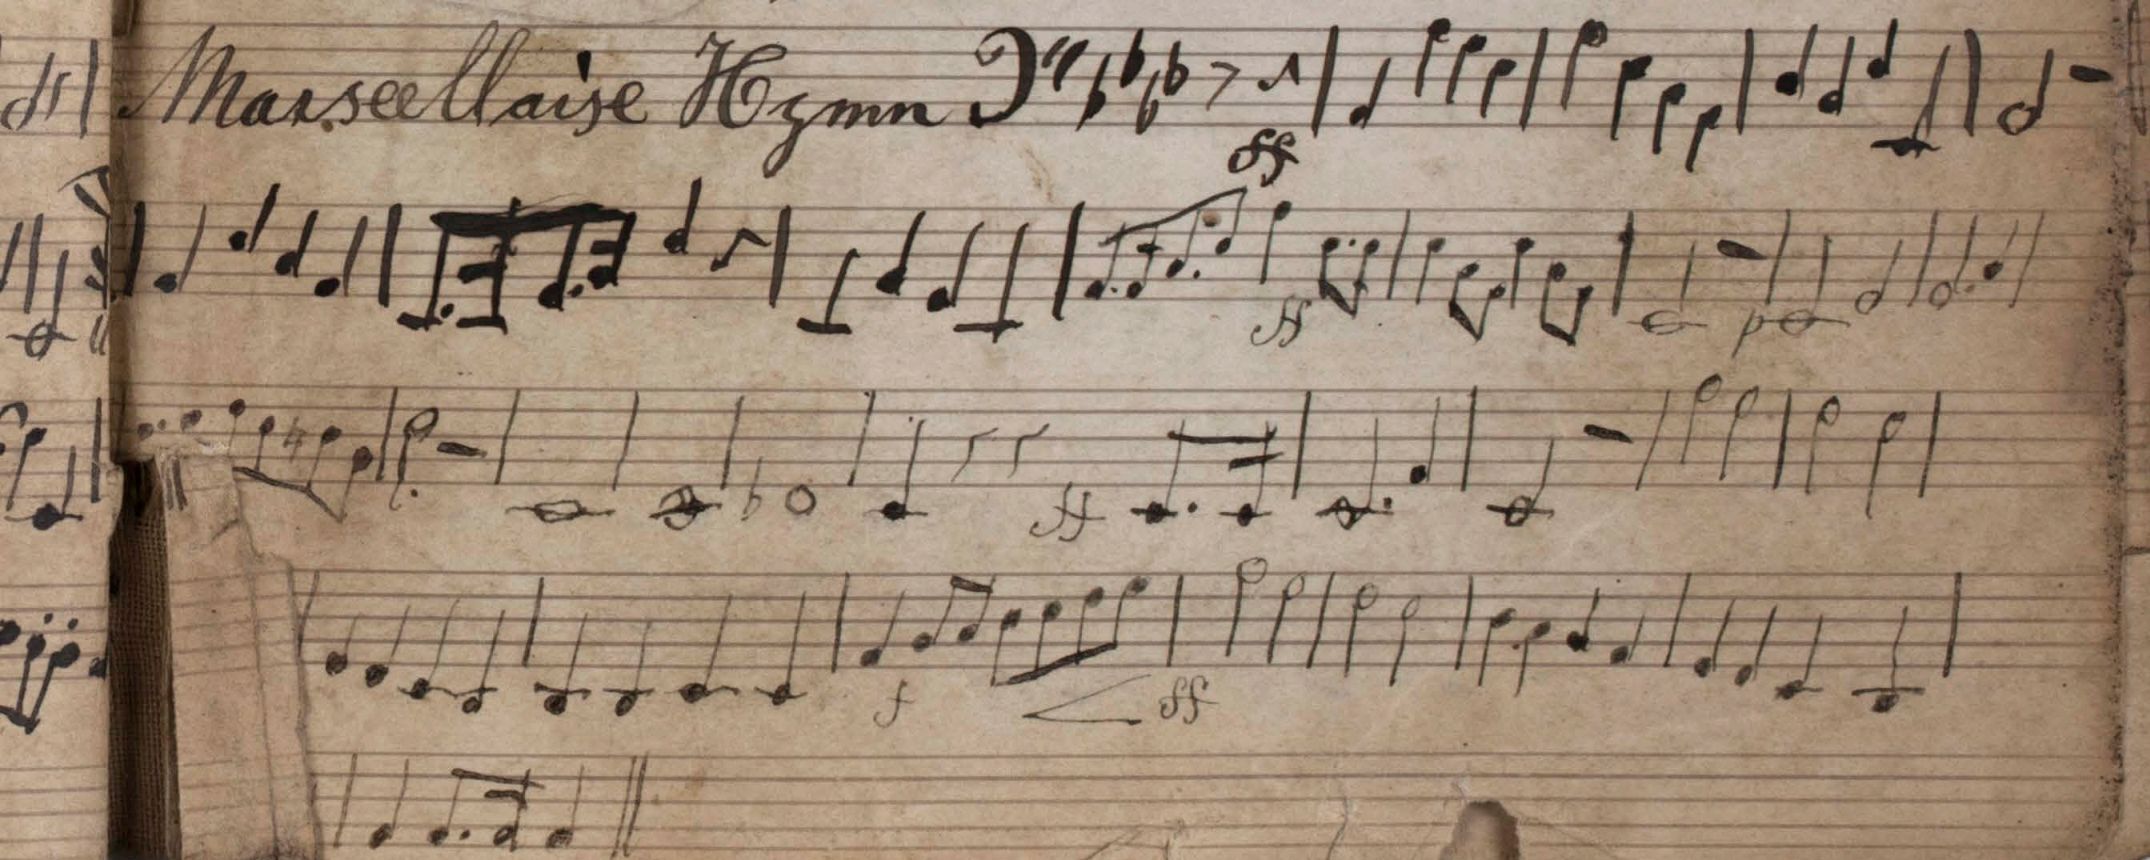 Marseellaise Hymn
ff
ff p
ff
f ff